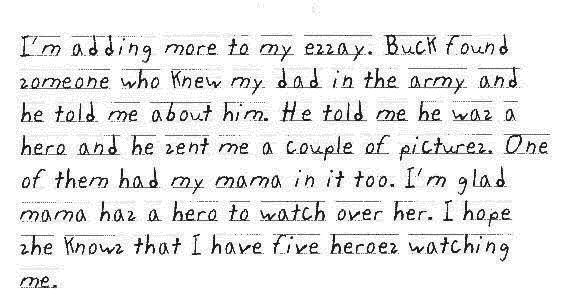 I'm adding more to my ezzay. Buck found
zomeone who knew my dad in the army and
he told me about him. He told me he waz a
hero and he zent me a couple of picturez. One
of them had my mama in it too. I'm glad
mama haz a hero to watch over her. I hope
zhe knowz that I have five heroez watching
me.